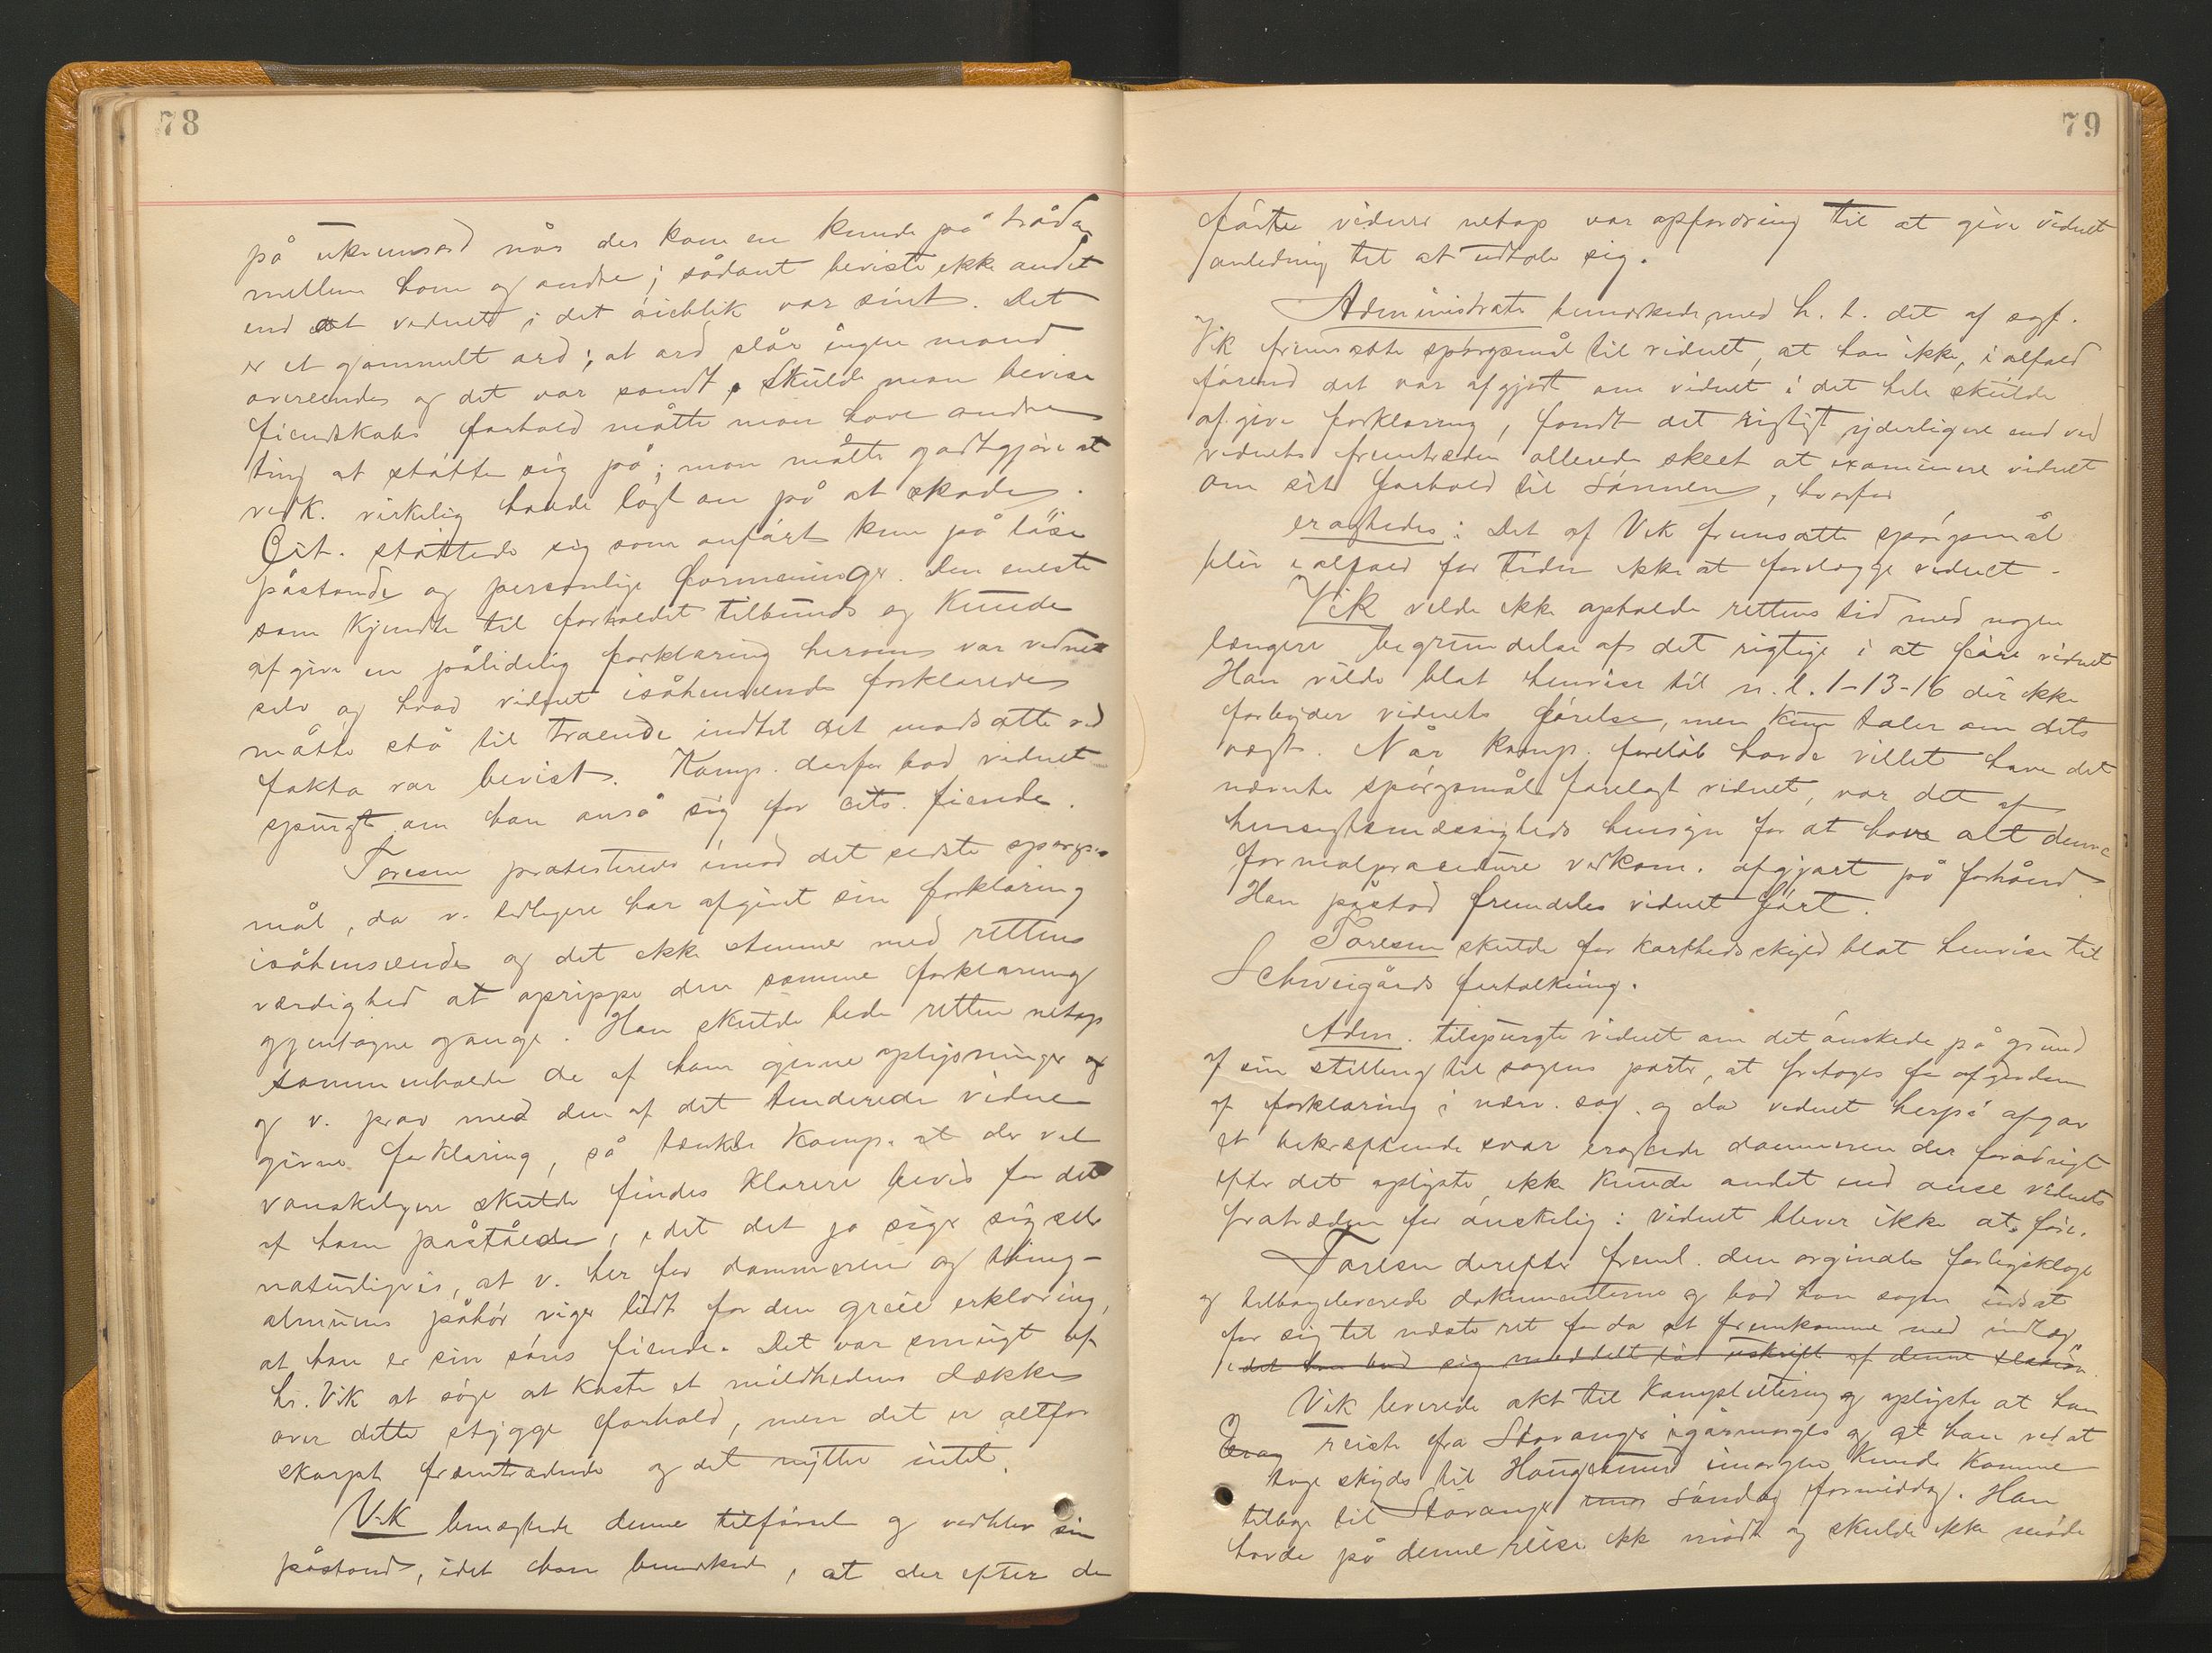 78
på ukrumsord når der kom en knude på tråden
mellem ham og andre; sådant beviste ikke andet
end at vidnet i det øieblik var sint. Det
er et gammelt ord; at ord slår ingen mand
overende og det var sandt. Skulde man bevise
fiendskabs forhold måtte man have andre
ting at støtte sig på; man måtte godtgjøre at
vedk. virkelig havde lagt an på at skade.
Cit. støttede sig som anført kun på løse
påstande og personlige formeninger. Den eneste
som kjendte til forholdet tilbunds og kunde
afgive en pålidelig forklaring herom var vidnet
selv og hvad vidnet isåhenseende forklarede
måtte stå til troende indtil det modsatte ved
fakta var bevist. Komp. derfor bad vidnet
spurgt om han anså sig for cits. fiende.
Toresen protesterede imod det sidste spørgs-
mål, da v. tidligere har afgivt sin forklaring
isåhenseende og det ikke stemmer med rettens
værdighed at oprippe den samme forklaring
gjentagne gange. Han skulde bede retten netop
sammenholde de af ham givne oplysninger og
og v. prov med den af det tenderede vidne
givne forklaring, så tænkte komp. at der vel
vanskeligere skulde findes klarere bevis for det
af ham påståede, idet det jo siger sig selv
naturligvis, at v. her for dommeren og thing-
almuens påhør viger lidt for den greie erklæring,
at han er sin søns fiende. Det var smugt af
hr. Vik at søge at kaste et mildhedens dække
over dette stygge forhold, men det er altfor
skarpt fremtrædende og det nytter intet.
Vik benægtede denne tilførsel og vedblev sin
påstand, idet han bemærkede, at der efter de
79
førte vidner netop var opfordring til at give vidnet
anledning til at udtale sig.
Administrator bemærkede med h. t. det af sagf.
Vik fremsatte spørgsmål til vidnet, at han ikke, ialfald
førend det var afgjort om vidnet i det hele skulde
afgive forklaring, fandt det rigtigt yderligere end ved
vidnets fremtræden allerede skeet at examinere vidnet
om sit forhold til sønnen, hvorfor
eragtedes: Det af Vik fremsatte spørgsmål
blir ialfald for tiden ikke at forelægge vidnet.
Vik vilde ikke opholde rettens tid med nogen
længere begrundelse af det rigtige i at føre vidnet
Han vilde blot henvise til n. l. 1-13-16 der ikke
forbyder vidnets førelse, men kun taler om dets
vægt. Når komp. foreløb havde villet have det
nævnte spørgsmål forelagt vidnet, var det af
hensigtsmæssigheds hensyn for at have alt denne
formalprocedure vedkom. afgjort på forhånd
Han påstod fremdeles vidnet ført.
Toresen skulde for korthedsskyld blot henvise til
Schweigårds fortolkning.
Adm. tilspurgte vidnet om det ønskede på grund
af sin stilling til sagens parter, at fritages for afgivelsen
af forklaring i nærv. sag og da vidnet herpå afgav
et bekræftende svar eragtede dommeren der forøvrigt
efter det oplyste, ikke kunde andet end anse vidnets
fratræden for ønskelig: Vidnet bliver ikke at føre.
Toresen derefter freml. den orginale forligsklage
og tilbageleverede dokumenterne og bad han sagen udsat
for sig til næste ret for da at fremkomme med indlæg
idet han bad sig meddelt udskrift af denne
Vik leverede akt til Komplettering og oplyste at han
Erag reiste fra Stavanger igårmorges og at han ved at
tage skyds til Haugesund imorgen kunde komme
tilbage til Stavanger søndag formiddag. Han
havde på denne reise ikke mødt og skulde ikke møde